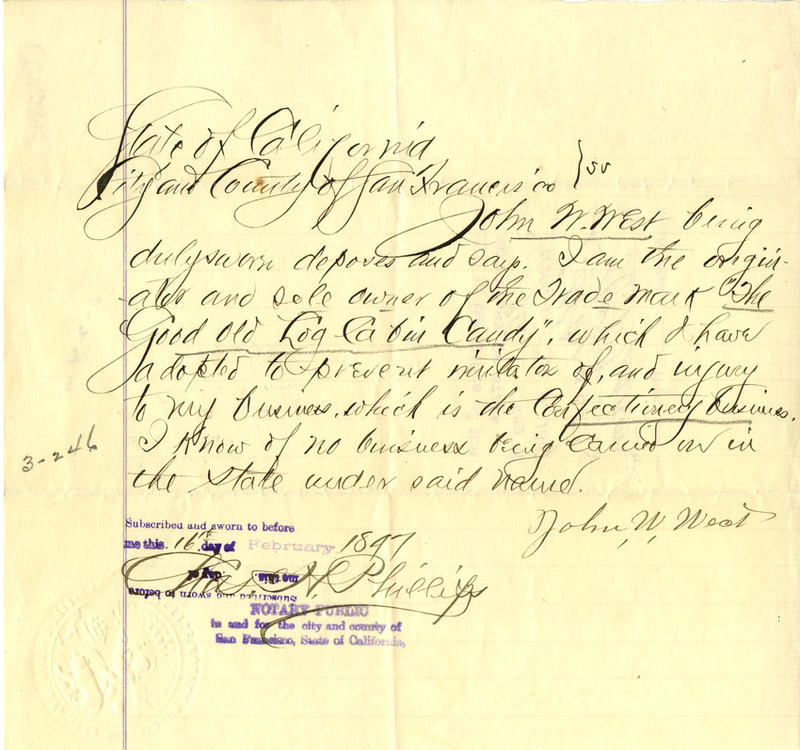 State of California
City and County of San Francisco } ss
John W. West being
duly sworn deposes and says. I am the origin-
-ator and sole owner of the Trade mark "The
Good Old Log Cabin Candy", which I have
adopted to prevent imitation of, and injury
to my business, which is the Confectionery business.
I know of no business being carried on in
the State under said name.
3-246
John W. West
Subscribed and sworn to before
me this 16th day of February 1897
Chas. H. Phillips
me this day of
Subscribed and sworn to before
NOTARY PUBLIC
in and for the city and county of
San Francisco, State of California,